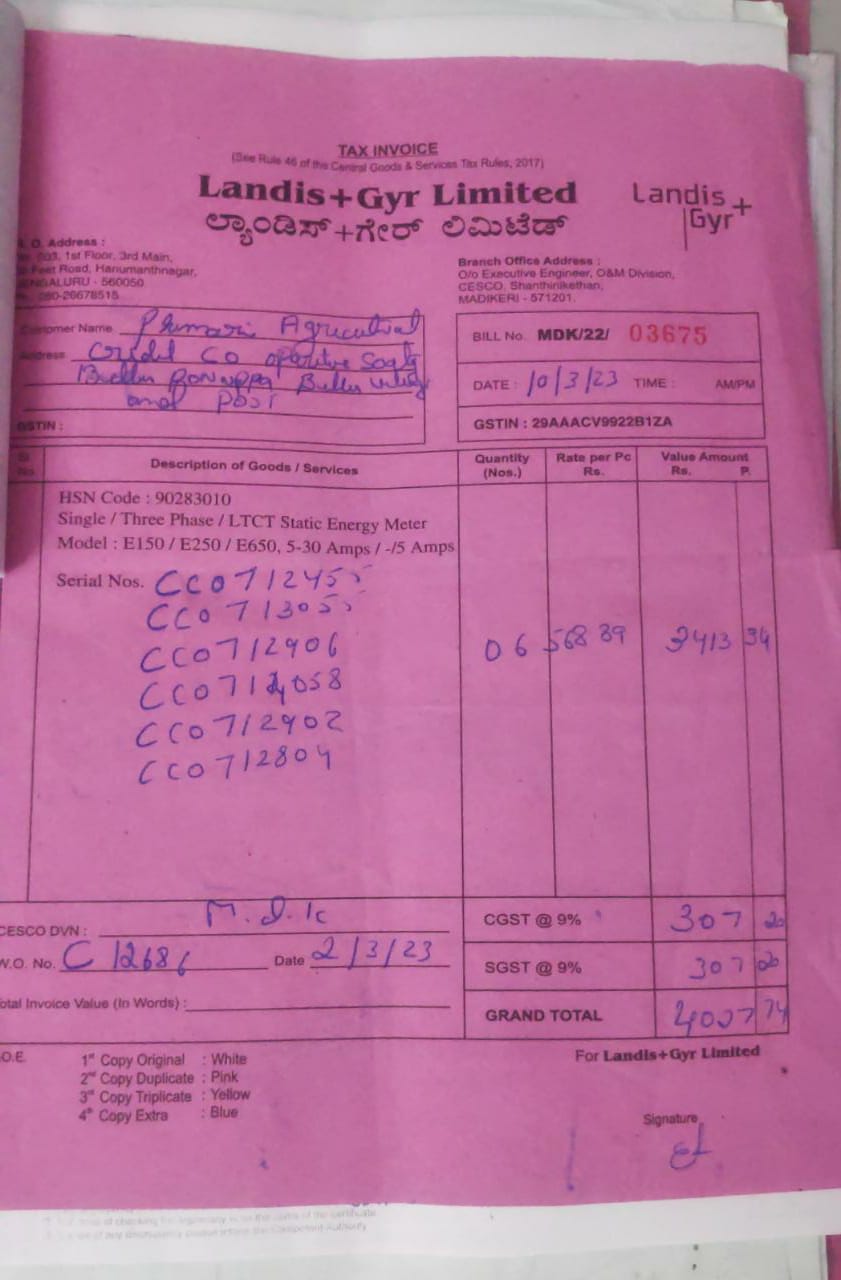 TAX INVOICE
(See Rule 46 of the Central Goods & Services Tax Rules, 2017)
Landis+Gyr Limited
ಲ್ಯಾಂಡಿಸ್+ಗೇರ್ ಲಿಮಿಟೆಡ್
Landis+
Gyr
O. Address :
1st Floor, 3rd Main,
Feet Road, Hanumanthnagar,
BENGALURU - 560050
080-26678515
Branch Office Address :
O/o Executive Engineer, O&M Division,
CESCO, Shanthinikethan,
MADIKERI - 571201.
Customer Name Agricultural
Address Co
and post
GSTIN :
BILL No. MDK/22/ 03675
DATE : 10/3/23 TIME : AM/PM
GSTIN : 29AAACV9922B1ZA
Sl. No. Description of Goods / Services Quantity (Nos.) Rate per Pc Rs. Value Amount Rs. P.
HSN Code : 90283010
Single / Three Phase / LTCT Static Energy Meter
Model : E150 / E250 / E650, 5-30 Amps / -/5 Amps
Serial Nos. CC0712455
CC0713055
CC0712906
06 568 89 3413 34
CC0712902
CC0712804
CESCO DVN : M.D.K
CGST @ 9% 307 20
W.O. No. C 12686 Date 2/3/23
SGST @ 9% 307 20
Total Invoice Value (In Words) :
GRAND TOTAL 4027 74
O.E.
1st Copy Original : White
2nd Copy Duplicate : Pink
3rd Copy Triplicate : Yellow
4th Copy Extra : Blue
For Landis+Gyr Limited
Signature